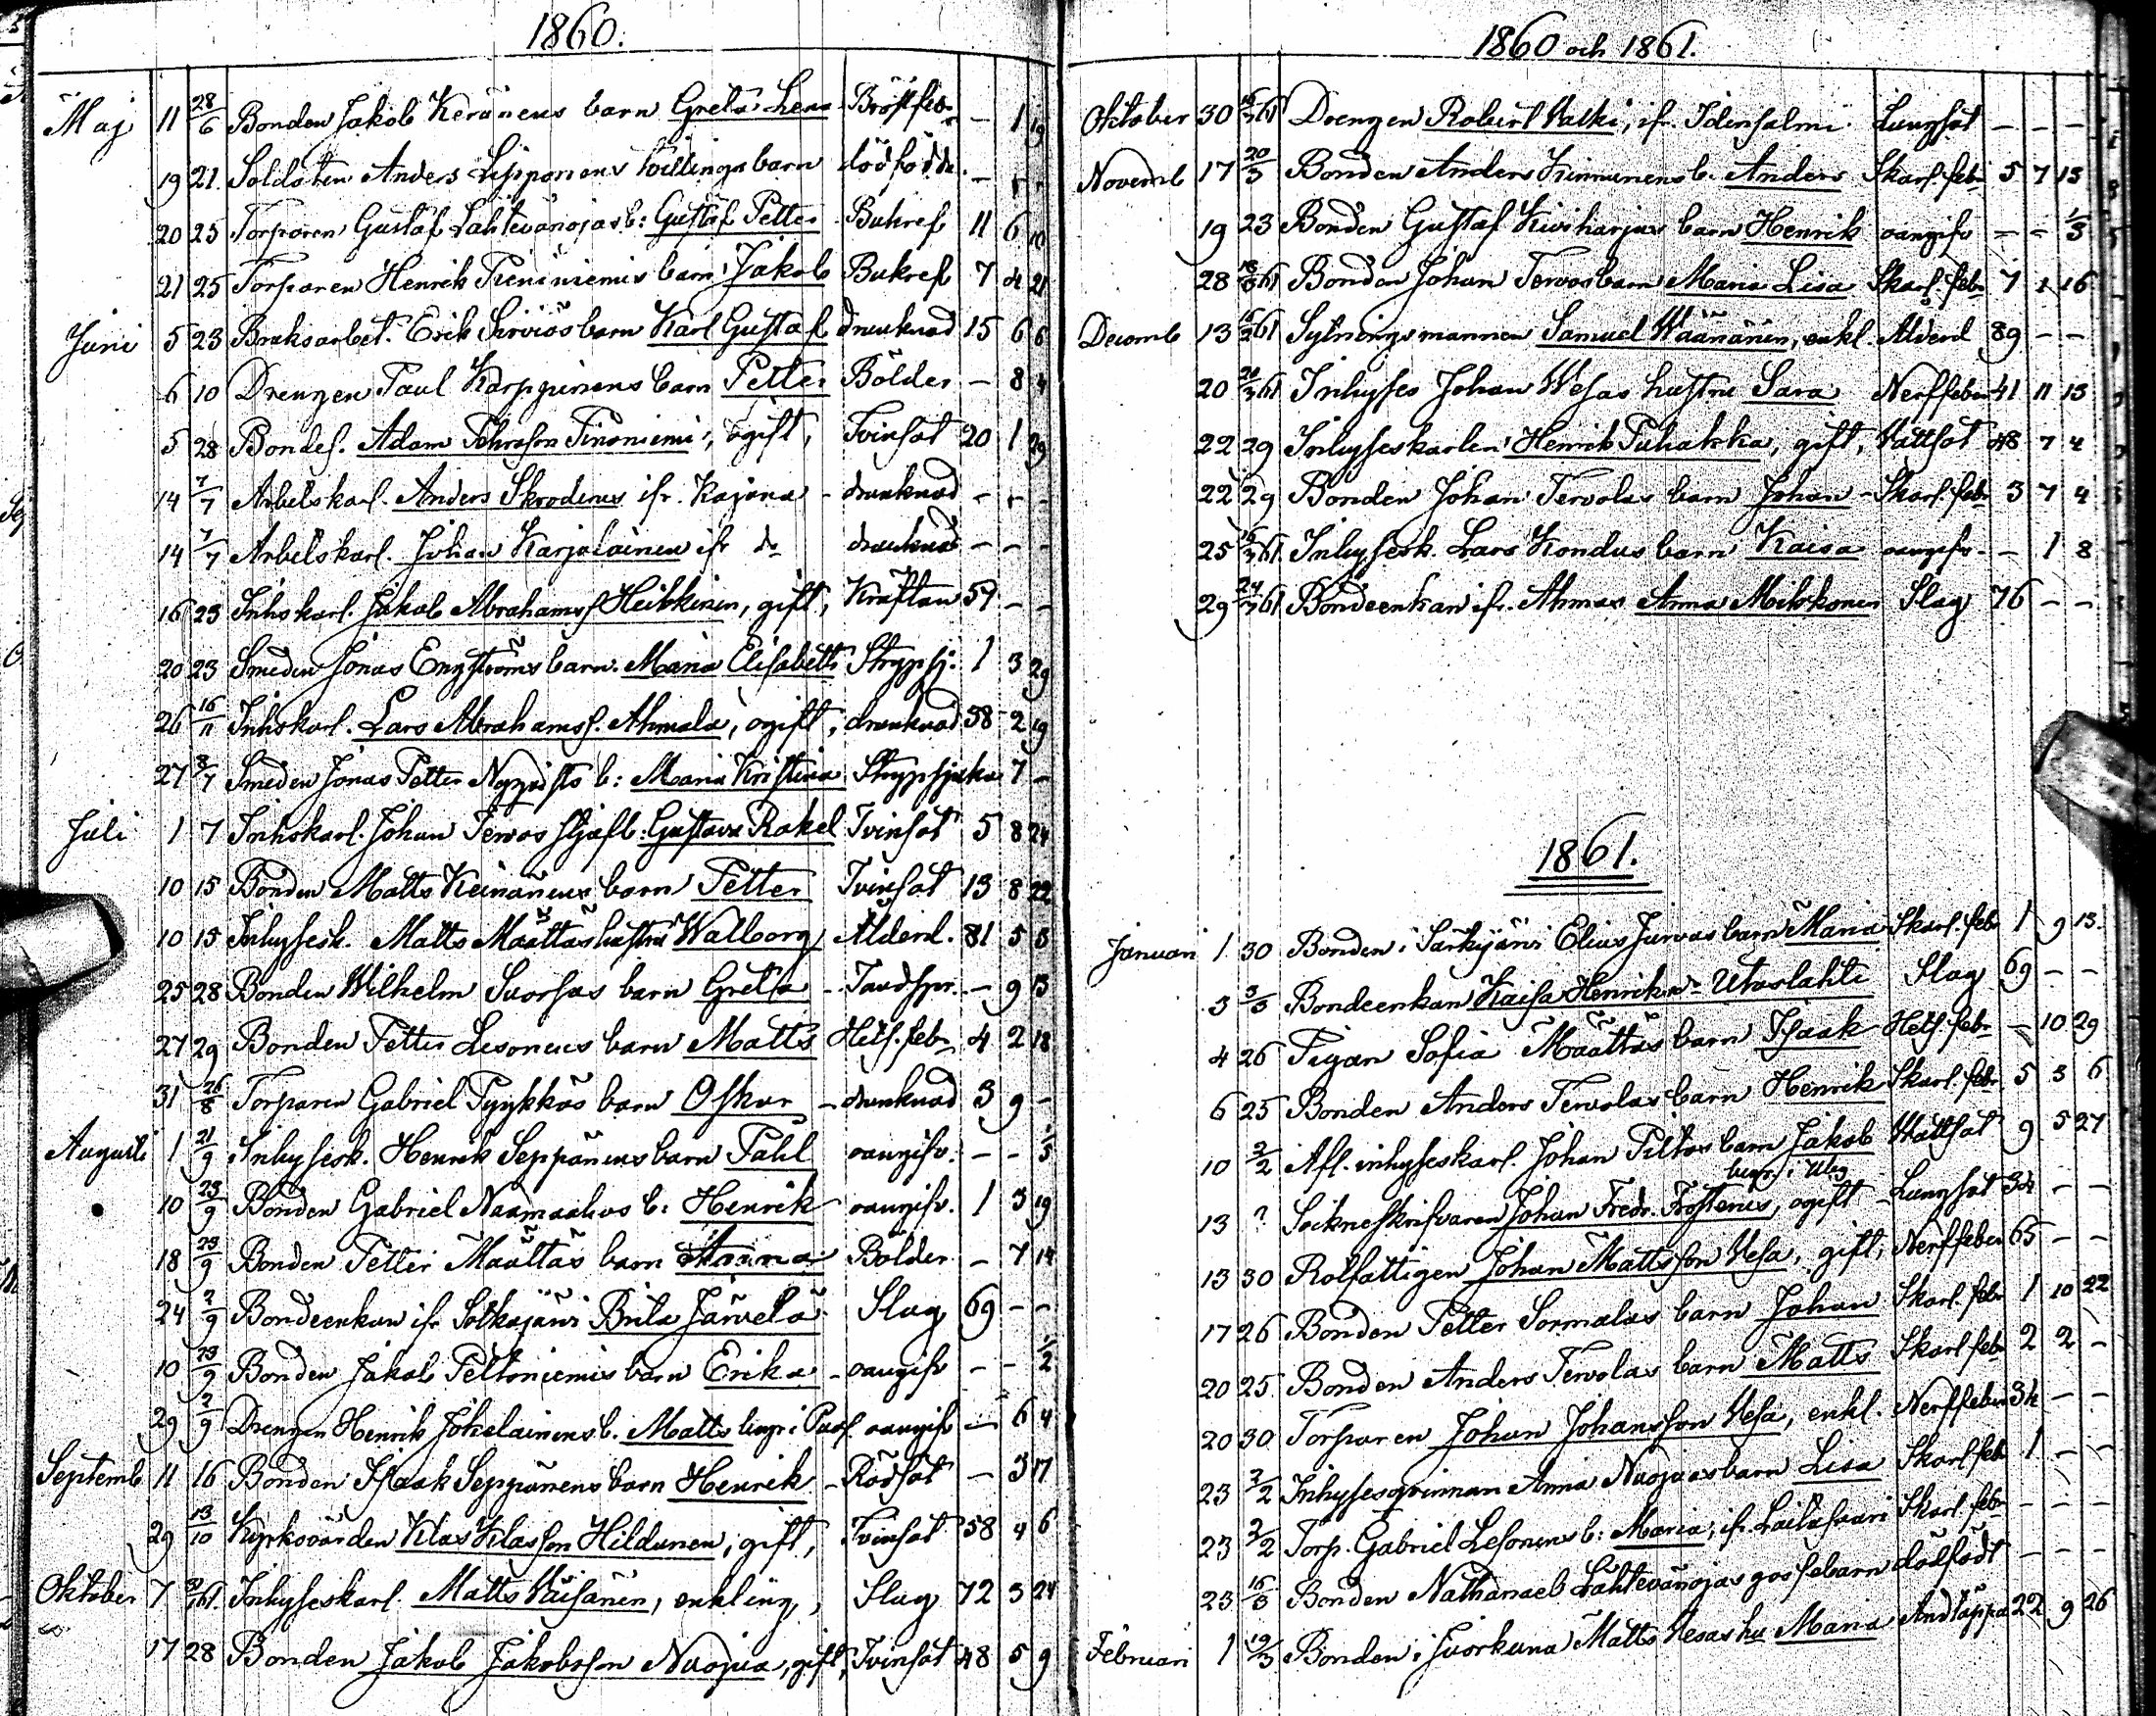 1860.
Maj 11 28/6 Bonden Jakob Keränens barn Greta Lena Bröstfeb. - 1 19
19 21. Soldaten Anders Lipponens tvillingabarn dödfödda. - - -
20 25 Torparen Gustaf Lahtevänojas b: Gustaf Petter Bukref 11 6 10
21 25 Torparen Henrik Pieniniemis barn Jakob Bukref 7 4 21
Juni 5 23 Bruksarbet. Erik Sirviös barn Karl Gustaf drunknad 15 6 6
6 10 Drengen Paul Karppinens barn Petter Bölder - 8 4
5 28 Bondes. Adam Johnsson Tinoniemi, ogift, Tvinsot 20 1 29
14 7/7 Arbetskarl. Anders Skroderus ifr. Kajana - drunknad - - -
14 7/7 Arbetskarl. Johan Karjalainen ifr do drunknad - - -
16 23 Inhskarl. Jakob Abrahams. Heikkinen, gift, Kräftan 59 - -
20 23 Smeden Jonas Engströms barn. Maria Elisabeth Strypsj. 1 3 29
26 16/11 Inhskarl. Lars Abrahams. Ahmala, ogift, drunknad 38 2 19
27 8/7 Smeden Jonas Petter Nyqvists b: Maria Kristina Strypsjuka 7 -
Juli 1 7 Inhskarl. Johan Tervos stjufb: Gustava Rakel Tvinsot 5 8 24
10 15 Bonden Matts Keinänens barn Petter Tvinsot 13 8 22
10 15 Inhysesk. Matts Määttäs hustru Walborg Ålderd. 81 5 5
25 28 Bonden Wilhelm Suorsas barn Greta - Tandspr. - 9 13
27 29 Bonden Petter Lesonens barn Matts Hets. febr 4 2 18
31 26/8 Torparen Gabriel Pyykkös barn Oskar - drunknad 3 9 -
Augusti 1 21/9 Inhysesk. Henrik Seppänens barn Påhl oangifv. - - 1/3
10 23/9 Bonden Gabriel Naamankas b: Henrik oangifv. 1 3 19
18 23/9 Bonden Petter Määttäs barn Anna Bölder - 7 14
24 2/9 Bondeenkan ifr Sotkajärvi Brita Järvelä Slag 69 - -
10 23/9 Bonden Jakob Peltoniemis barn Erika - oangifv - - 1/2
29 2/9 Drengen Henrik Jokelainens b. Matts begr. i Paof. oangifv - 6 4
Septemb 11 16 Bonden Isaak Seppänens barn Henrik - Rödsot - 3 17
29 13/10 Kyrkovärden Klas Klasson Hildunen, gift, Tvinsot 58 4 6
Oktober 7 61. Inhyseskarl. Matts Väisänen, enkling, Slag 72 3 24
17 28 Bonden Jakob Jakobsson Nuojua, gift, Tvinsot 48 5 9
1860 och 1861.
Oktober 30 61 Drengen Robert Valki, ifr. Idensalmi Lungsot - - -
Novemb 17 20/3 Bonden Anders Kinnunens b. Anders Skarl. feb 5 7 15
19 23 Bonden Gustaf Kiviharjus barn Henrik oangifv - - 1/3
28 61 Bonden Johan Tervos barn Maria Lisa Skarl. febr 7 1 16
Decemb 13 61 Sytningsmannen Samuel Wäänänen, enkl. Ålderd 89 - -
20 61 Inhyses Johan Wesas hustru Sara Nerffeber 41 11 13
22 29 Inhyseskarlen Henrik Puhakka, gift, Vattsot 48 7 4
22 29 Bonden Johan Tervolas barn Johan - Skarl. febr 3 7 4
25 61. Inhysesk. Lars Kondus barn Kaisa oangifv. - 1 8
29 61 Bondeenkan ifr. Ahmas Anna Mikkonen Slag 76 - -
1861.
Januari 1 30 Bonden i Särkijärvi Elias Jurvas barn Maria Skarl. feb 1 9 13.
3 3/3 Bondeenkan Kaisa Henriksd. Utoslahti Slag 69 - -
4 26 Pigan Sofia Määttäs barn Isaak Hets. febr - 10 29
6 25 Bonden Anders Tervolas barn Henrik Skarl. feb 5 3 6
10 2/2 Afl. inhyseskarl. Johan Piltos barn Jakob Wattsot 9 5 27
begr. i Ulbg
13 ? Sockneskrifvaren Johan Fredr. Frosterus, ogift Lungsot 34 - -
13 30 Rotfattigen Johan Mattsson Vesa, gift, Nerffeber 65 - -
17 26 Bonden Petter Sormalas barn Johan Skarl. febr 1 10 22
20 25 Bonden Anders Tervolas barn Matts Skarl febr 2 2 -
20 30 Torparen Johan Johansson Vesa, enkl. Nerffeber 34 - -
23 2/2 Inhysesqvinnan Anna Nuojuas barn Lisa Skarl feb 1 - -
23 2/2 Torp. Gabriel Lesonens b: Maria, ifr. Laitasaari Skarl. feb - - -
23 16/3 Bonden Nathanael Lahtevänojas gossebarn dödfödt - - -
Februari 1 19/3 Bonden i Juorkuna Matts Vesas hu Maria Andtäppa 22 9 26